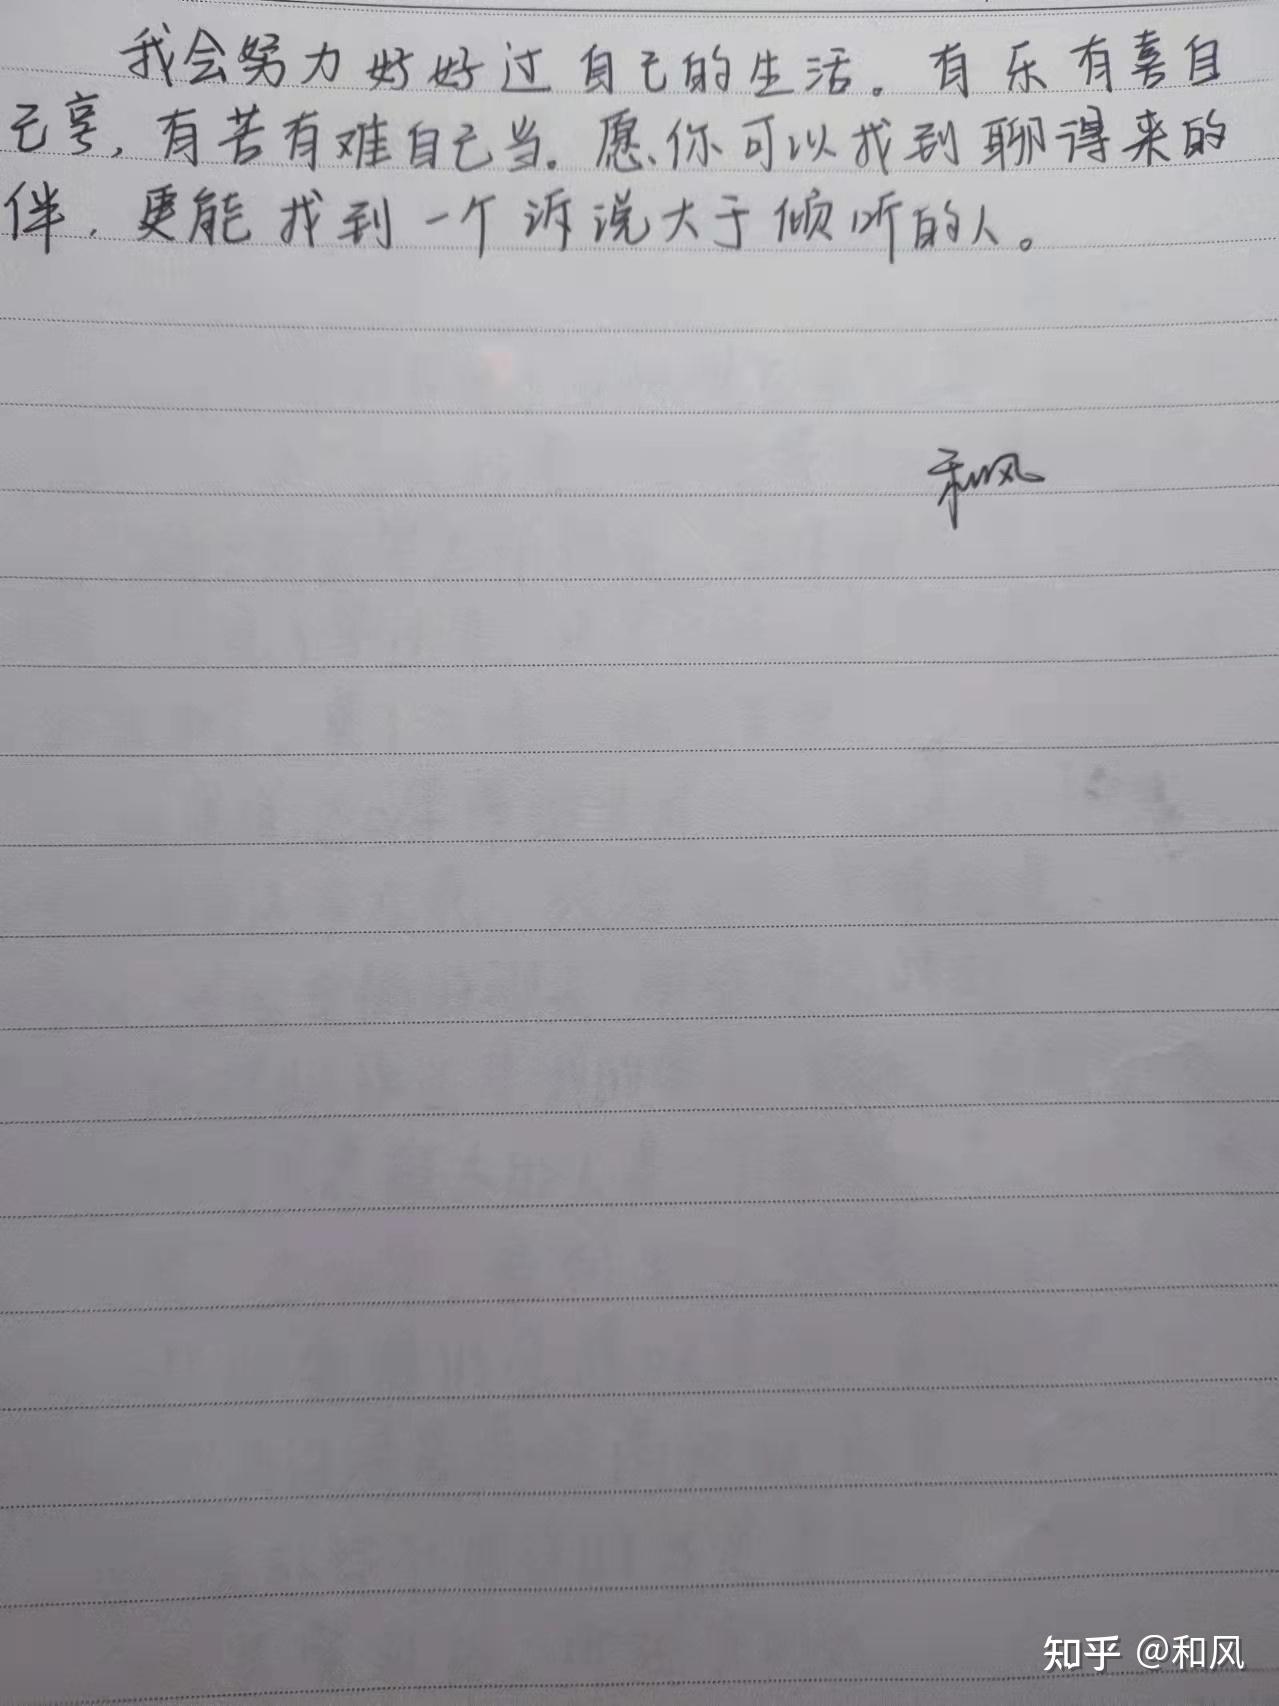 我会努力好好过自己的生活。有乐有喜自
己享，有苦有难自己当。愿你可以找到聊得来的
伴，更能找到一个诉说大于倾听的人。
和风
知乎 @和风